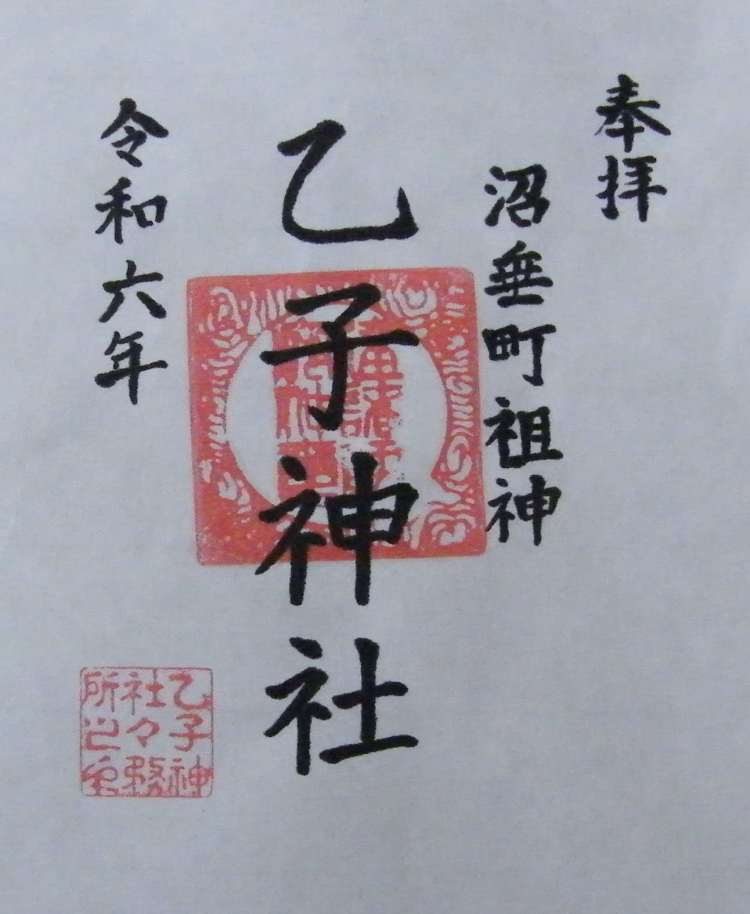 奉拝
沼垂町祖神
乙子神社
令和六年
乙子神
社々務
所之印